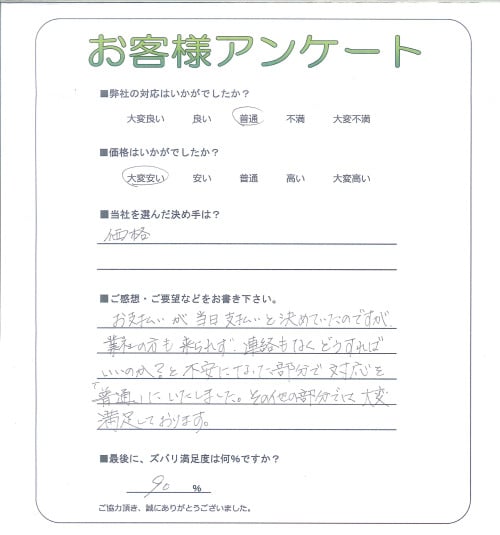 お客様アンケート
■弊社の対応はいかがでしたか？
大変良い 良い 普通 不満 大変不満
■価格はいかがでしたか？
大変安い 安い 普通 高い 大変高い
■当社を選んだ決め手は？
価格
■ご感想・ご要望などをお書き下さい。
お支払いが当日支払いと決めていたのですが
業社の方も来られず、連絡もなくどうすれば
いいのか？と不安になった部分で対応を
「普通」にいたしました。その他の部分では大変
満足しております。
■最後に、ズバリ満足度は何%ですか？
90 %
ご協力頂き、誠にありがとうございました。